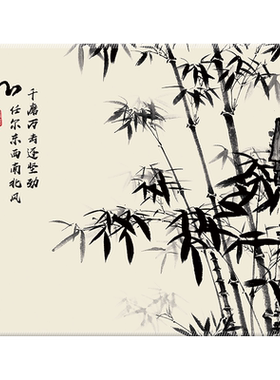 千磨万击还坚劲
任尔东西南北风